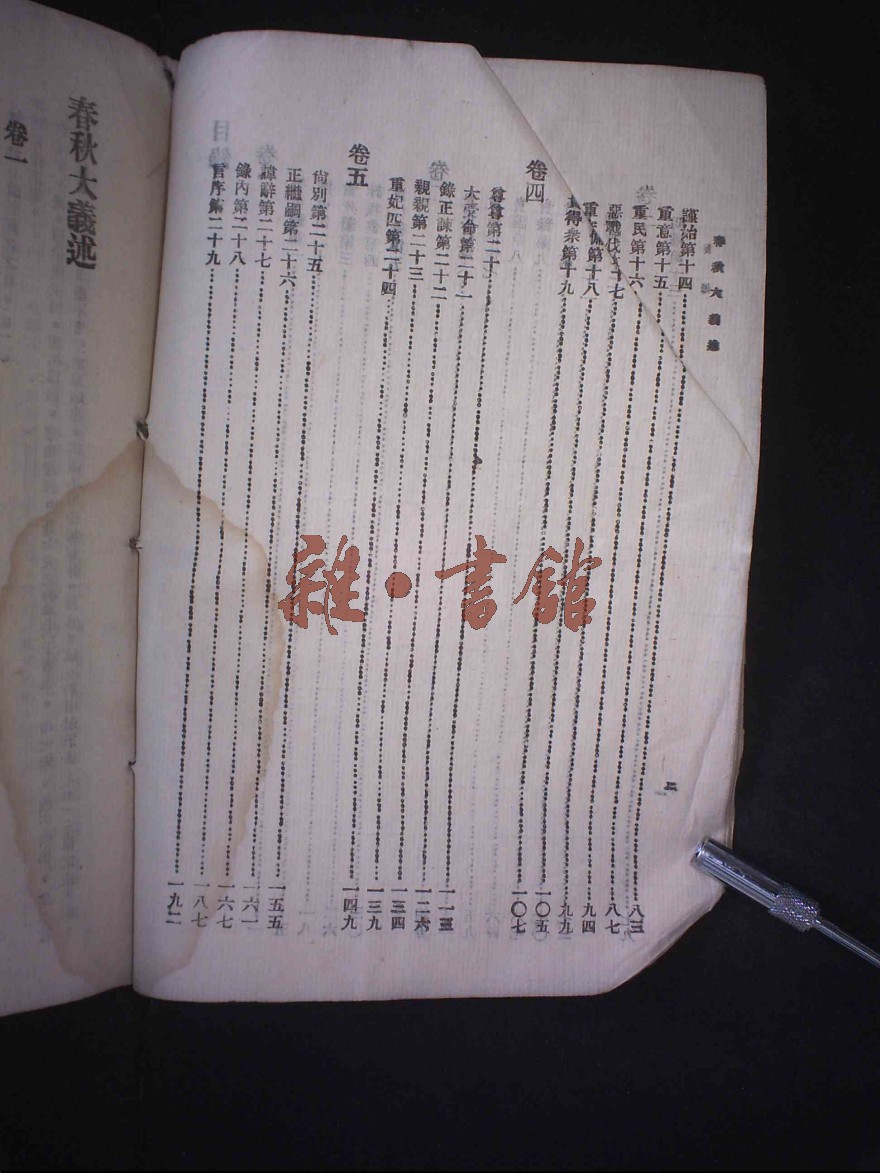 春秋大義述
二
謹始第十四 八三
重意第十五 八七
重民第十六 九四
惡戰伐十七 九九
重備第十八 一〇五
得衆第十九 一〇七
卷四
尊尊第二十 一一三
大受命第二十一 一二六
錄正諫第二十二 一三四
親親第二十三 一三九
重妃匹第二十四 一四九
卷五
尙別第二十五 一五五
正繼嗣第二十六 一六一
諱辭第二十七 一六七
錄內第二十八 一八七
言序第二十九 一九二
春秋大義述
卷一
雜·書館